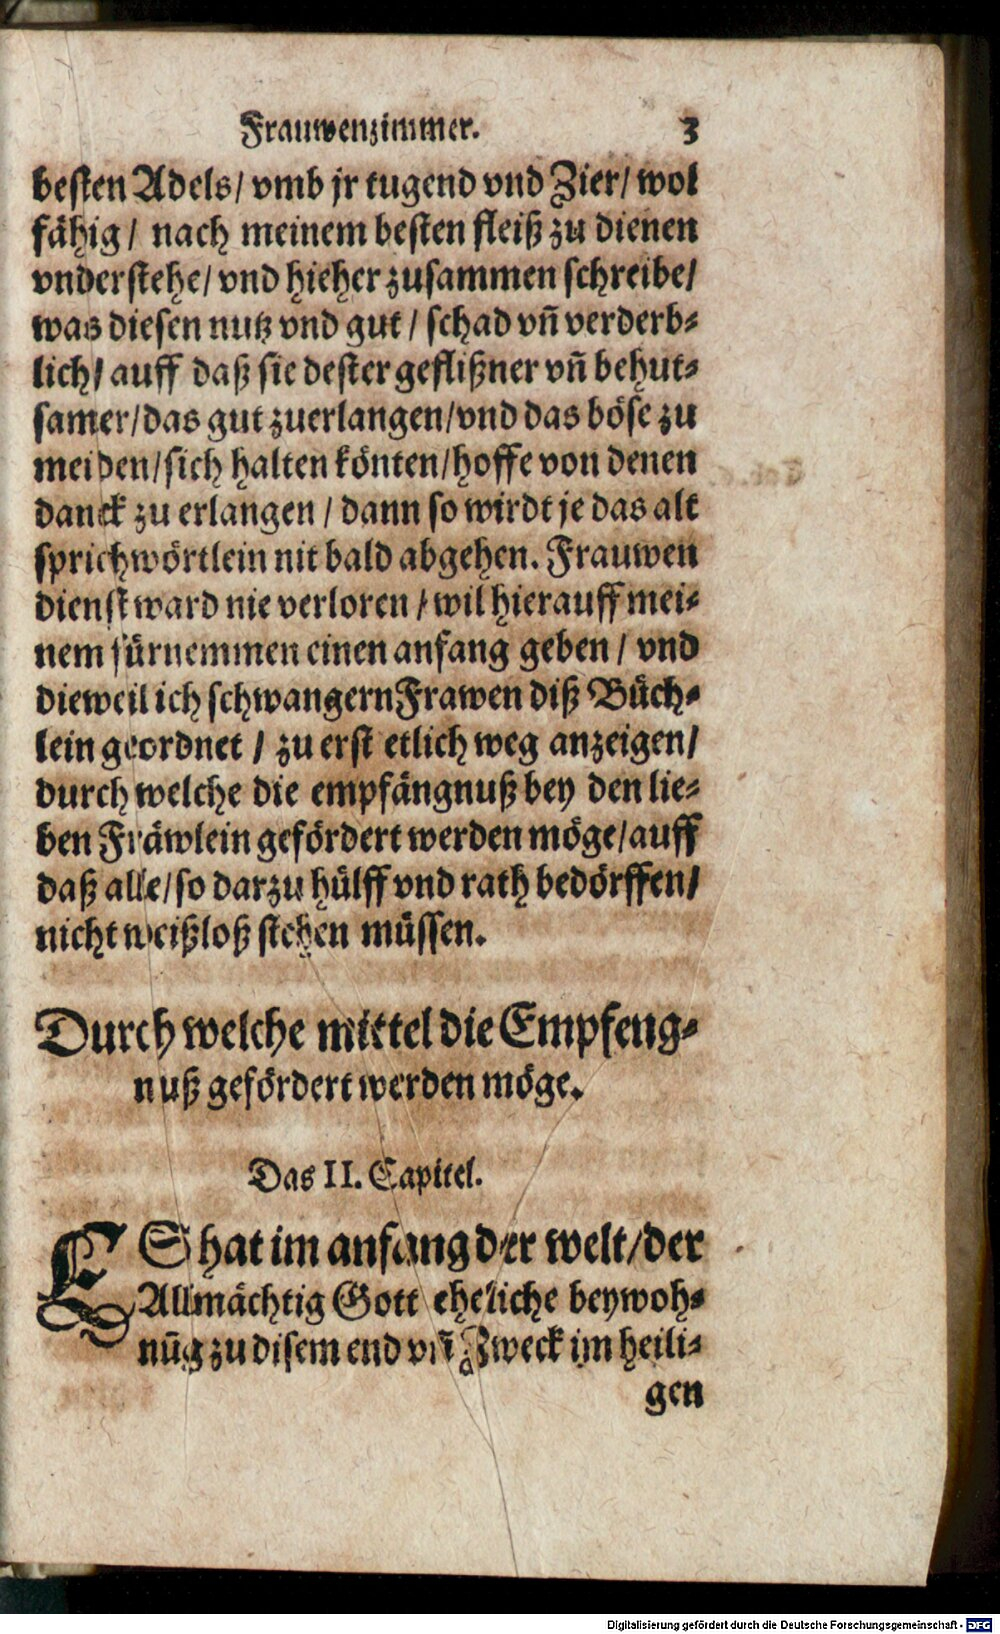 Frauwenzimmer. 3
besten Adels/ vmb jr tugend vnd Zier/ wol
fähig/ nach meinem besten fleiß zu dienen
vnderstehe/ vnd hieher zusammen schreibe/
was diesen nutz vnd gut / schad vñ verderb-
lich/ auff daß sie dester geflißner vñ behut-
samer/das gut zuerlangen/vnd das böse zu
meiden/sich halten könten/hoffe von denen
danck zu erlangen / dann so wirdt je das alt
sprichwörtlein nit bald abgehen. Frauwen
dienst ward nie verloren / wil hierauff mei-
nem fürnemmen einen anfang geben / vnd
dieweil ich schwangern Frawen diß Büch-
lein geordnet / zu erst etlich weg anzeigen/
durch welche die empfängnuß bey den lie-
ben Fräwlein gefördert werden möge/auff
daß alle/so darzu hülff vnd rath bedörffen/
nicht weißloß stehen müssen.
Durch welche mittel die Empfeng-
nuß gefördert werden möge.
Das II. Capitel.
ES hat im anfang der welt/der
Allmächtig Gott eheliche beywoh-
nūg zu disem end vñ Zweck im heili-
gen
Digitalisierung gefördert durch die Deutsche Forschungsgemeinschaft - DFG